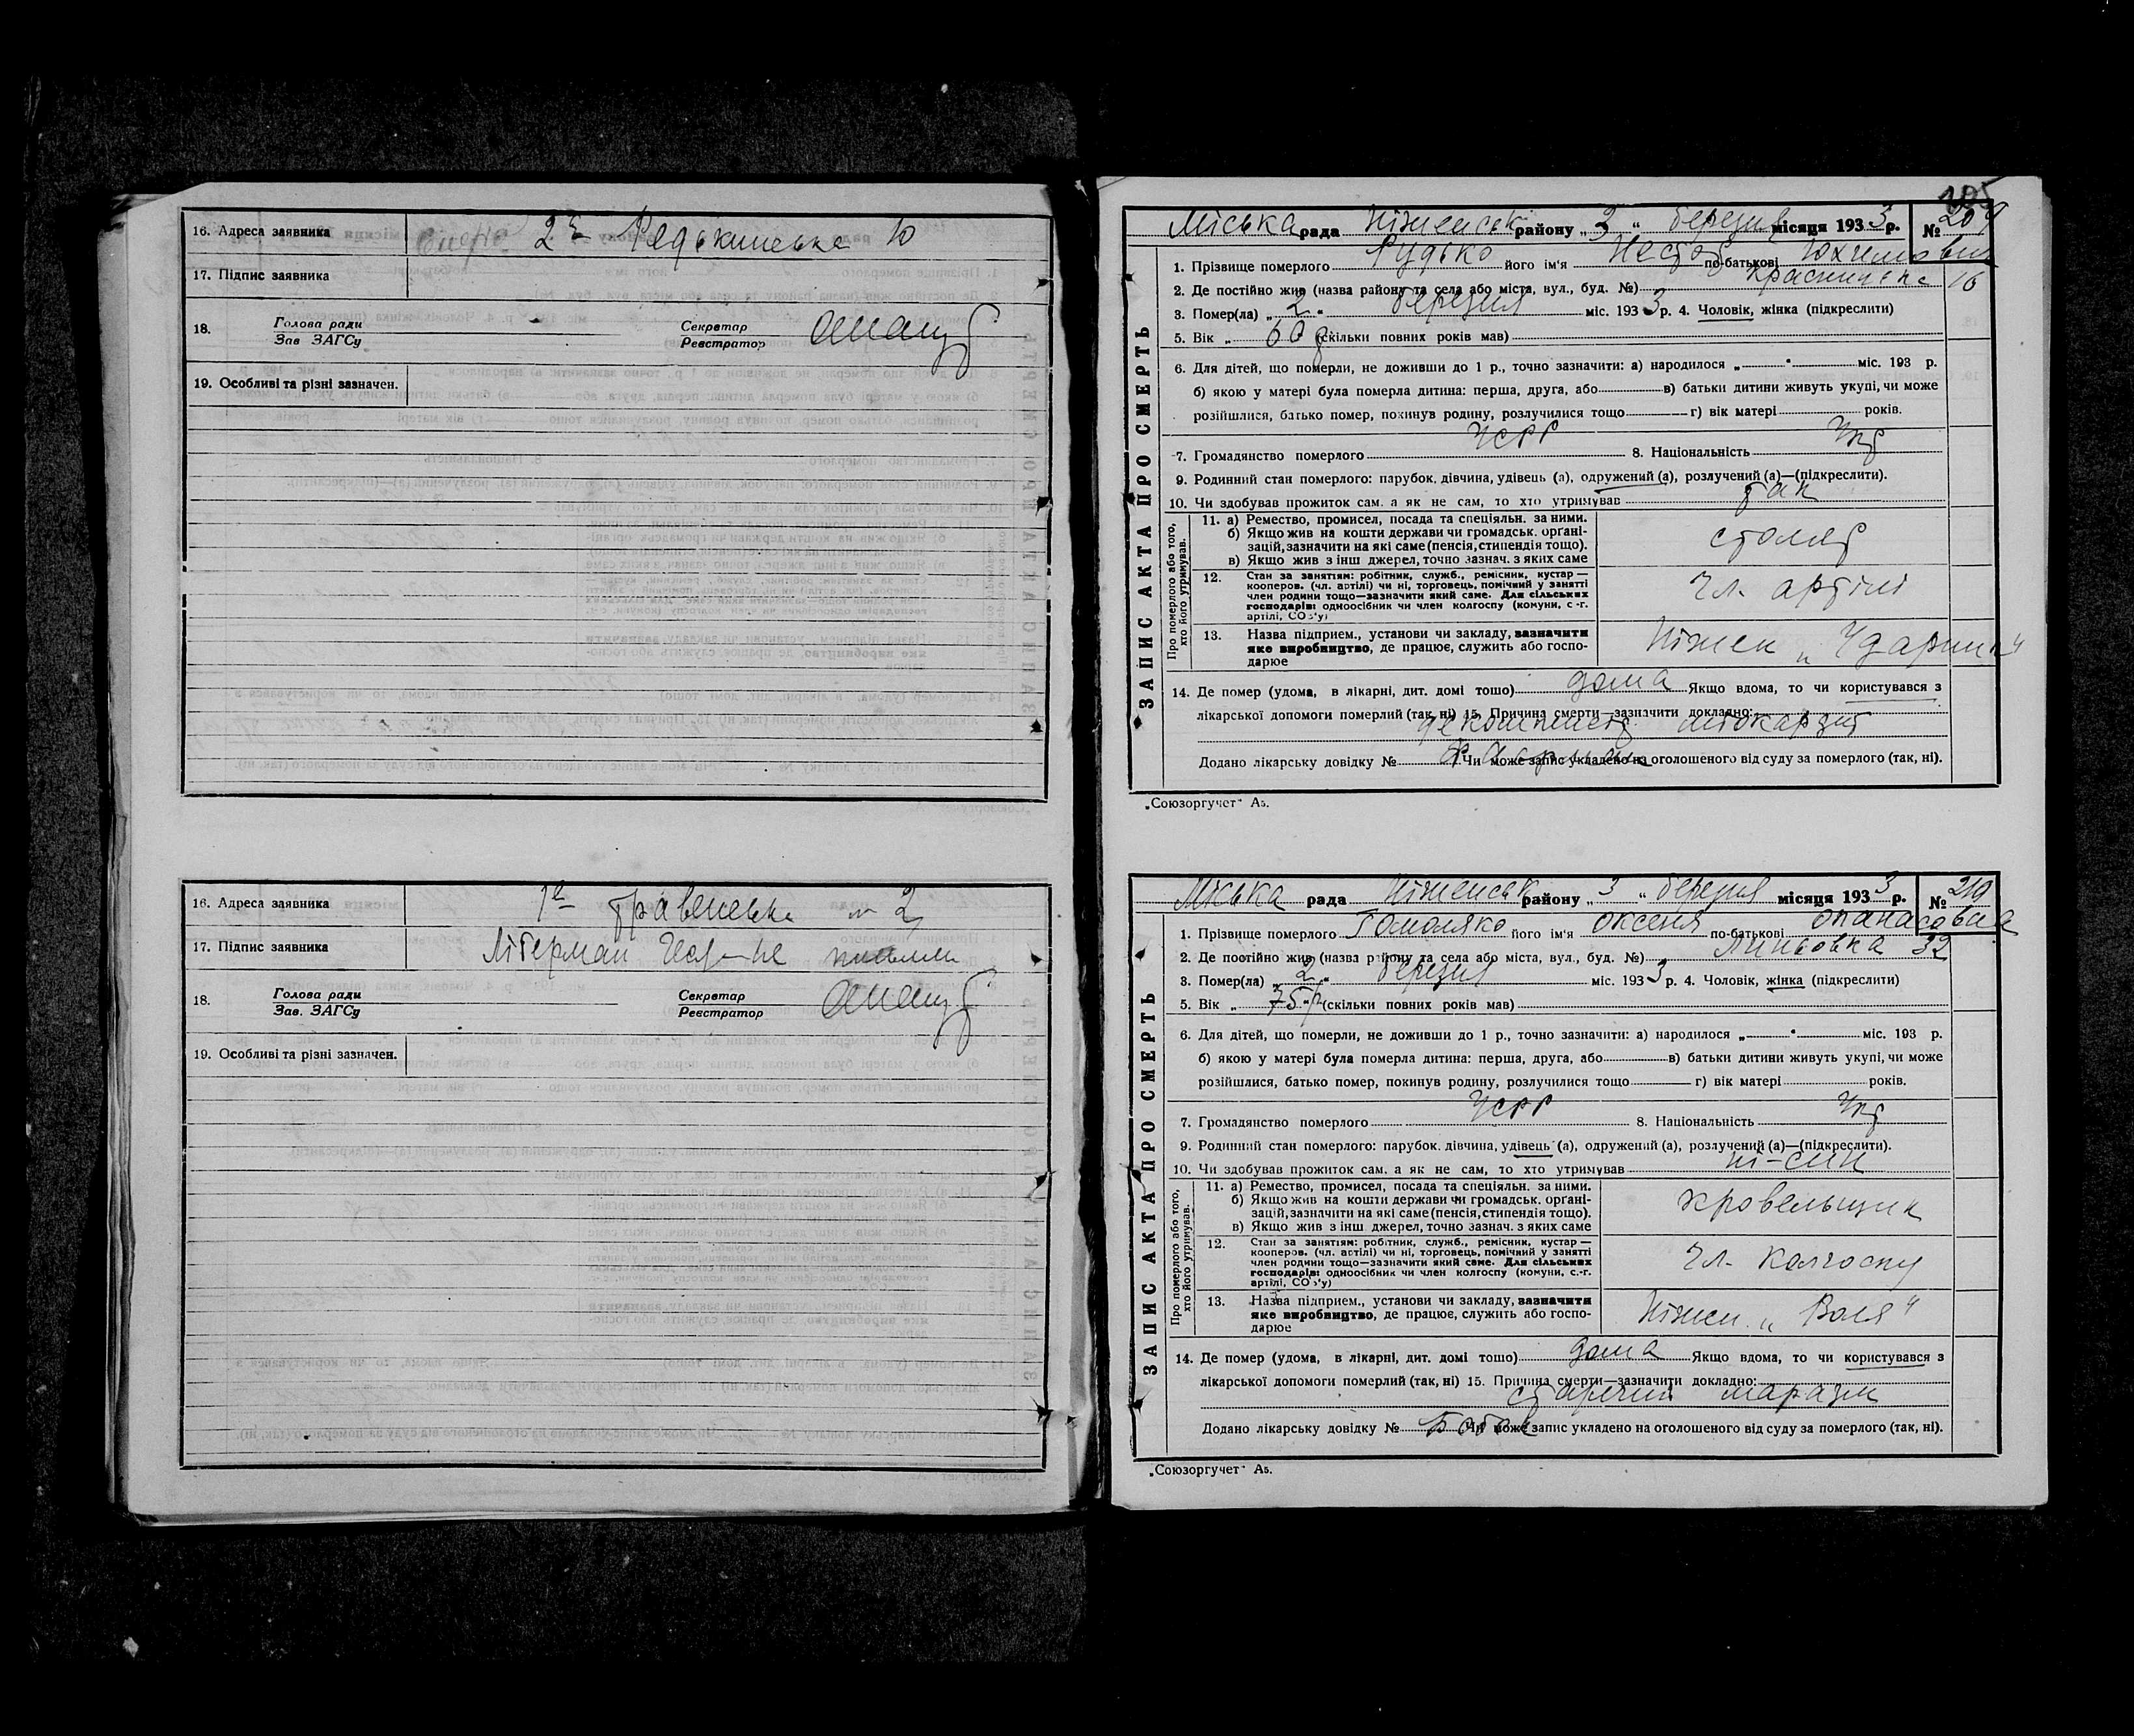 16. Адреса заявника 2га Редькинська 10
17. Підпис заявника
18. Голова ради
Зав ЗАГСу
Секретар
Реєстратор
19. Особливі та різні зазначен.
16. Адреса заявника 1а Гравенська № 2
17. Підпис заявника Ліберман
18. Голова ради
Зав. ЗАГСу
Секретар
Реєстратор
19. Особливі та різні зазначен.
205
ЗАПИС АКТА ПРО СМЕРТЬ
Міська рада Ніженськ району „3“ березня місяця 1933 р. № 209
1. Прізвище померлого Рудько його ім'я Нестор по-батькові Юхимович
2. Де постійно жив (назва району та села або міста, вул., буд. №) 16
3. Помер(ла) „2“ березня міс. 1933 р. 4. Чоловік, жінка (підкреслити)
5. Вік „ 60 р (скільки повних років мав)
6. Для дітей, що померли, не доживши до 1 р., точно зазначити: а) народилося „ “ міс. 193 р.
б) якою у матері була померла дитина: перша, друга, або в) батьки дитини живуть укупі, чи може
розійшлися, батько помер, покинув родину, розлучилися тощо г) вік матері років.
7. Громадянство померлого УСРР 8. Національність Укр
9. Родинний стан померлого: парубок, дівчина, удівець (а), одружений (а), розлучений (а)—(підкреслити).
10. Чи здобував прожиток сам, а як не сам, то хто утримував так
Про померлого або того, хто його утримував.
11. а) Ремество, промисел, посада та спеціяльн. за ними.
б) Якщо жив на кошти держави чи громадськ. орґані-
зацій, зазначити на які саме (пенсія, стипендія тощо).
в) Якщо жив з інш джерел, точно зазнач. з яких саме
столяр
12. Стан за заняттям: робітник, служб., ремісник, кустар —
кооперов. (чл. артілі) чи ні, торговець, помічний у занятті
член родини тощо—зазначити який саме. Для сільських
господарів: одноосібник чи член колгоспу (комуни, с.-г.
артілі, СОЗ'у)
чл. артілі
13. Назва підприєм., установи чи закладу, зазначити
яке виробництво, де працює, служить або госпо-
дарює
Ніжен „Ударник“
14. Де помер (удома, в лікарні, дит. домі тощо) дома Якщо вдома, то чи користувався з
лікарської допомоги померлий (так, ні) 15. Причина смерти—зазначити докладно:
декомпенс міокардит
Додано лікарську довідку № Чи може запис укладено на оголошеного від суду за померлого (так, ні).
„Союзоргучет“ А5.
ЗАПИС АКТА ПРО СМЕРТЬ
Міська рада Ніженськ району „3“ березня місяця 1933 р. № 210
1. Прізвище померлого Гомоляко його ім'я Оксеня по-батькові Опанасовна
2. Де постійно жив (назва району та села або міста, вул., буд. №) Миньовка 32
3. Помер(ла) „2“ березня міс. 1933 р. 4. Чоловік, жінка (підкреслити)
5. Вік „ 75 р (скільки повних років мав)
6. Для дітей, що померли, не доживши до 1 р., точно зазначити: а) народилося „ “ міс. 193 р.
б) якою у матері була померла дитина: перша, друга, або в) батьки дитини живуть укупі, чи може
розійшлися, батько помер, покинув родину, розлучилися тощо г) вік матері років.
7. Громадянство померлого УСРР 8. Національність Укр
9. Родинний стан померлого: парубок, дівчина, удівець (а), одружений (а), розлучений (а)—(підкреслити).
10. Чи здобував прожиток сам, а як не сам, то хто утримував ні-син
Про померлого або того, хто його утримував.
11. а) Ремество, промисел, посада та спеціяльн. за ними.
б) Якщо жив на кошти держави чи громадськ. орґані-
зацій, зазначити на які саме (пенсія, стипендія тощо).
в) Якщо жив з інш джерел, точно зазнач. з яких саме
кровельщик
12. Стан за заняттям: робітник, служб., ремісник, кустар —
кооперов. (чл. артілі) чи ні, торговець, помічний у занятті
член родини тощо—зазначити який саме. Для сільських
господарів: одноосібник чи член колгоспу (комуни, с.-г.
артілі, СОЗ'у)
чл. колгоспу
13. Назва підприєм., установи чи закладу, зазначити
яке виробництво, де працює, служить або госпо-
дарює
Ніжен. „Воля“
14. Де помер (удома, в лікарні, дит. домі тощо) дома Якщо вдома, то чи користувався з
лікарської допомоги померлий (так, ні) 15. Причина смерти—зазначити докладно:
старечий маразм
Додано лікарську довідку № Чи може запис укладено на оголошеного від суду за померлого (так, ні).
„Союзоргучет“ А5.